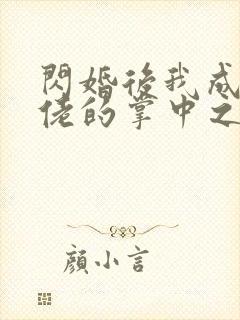 閃婚後我成
佬的掌中之
顏小言